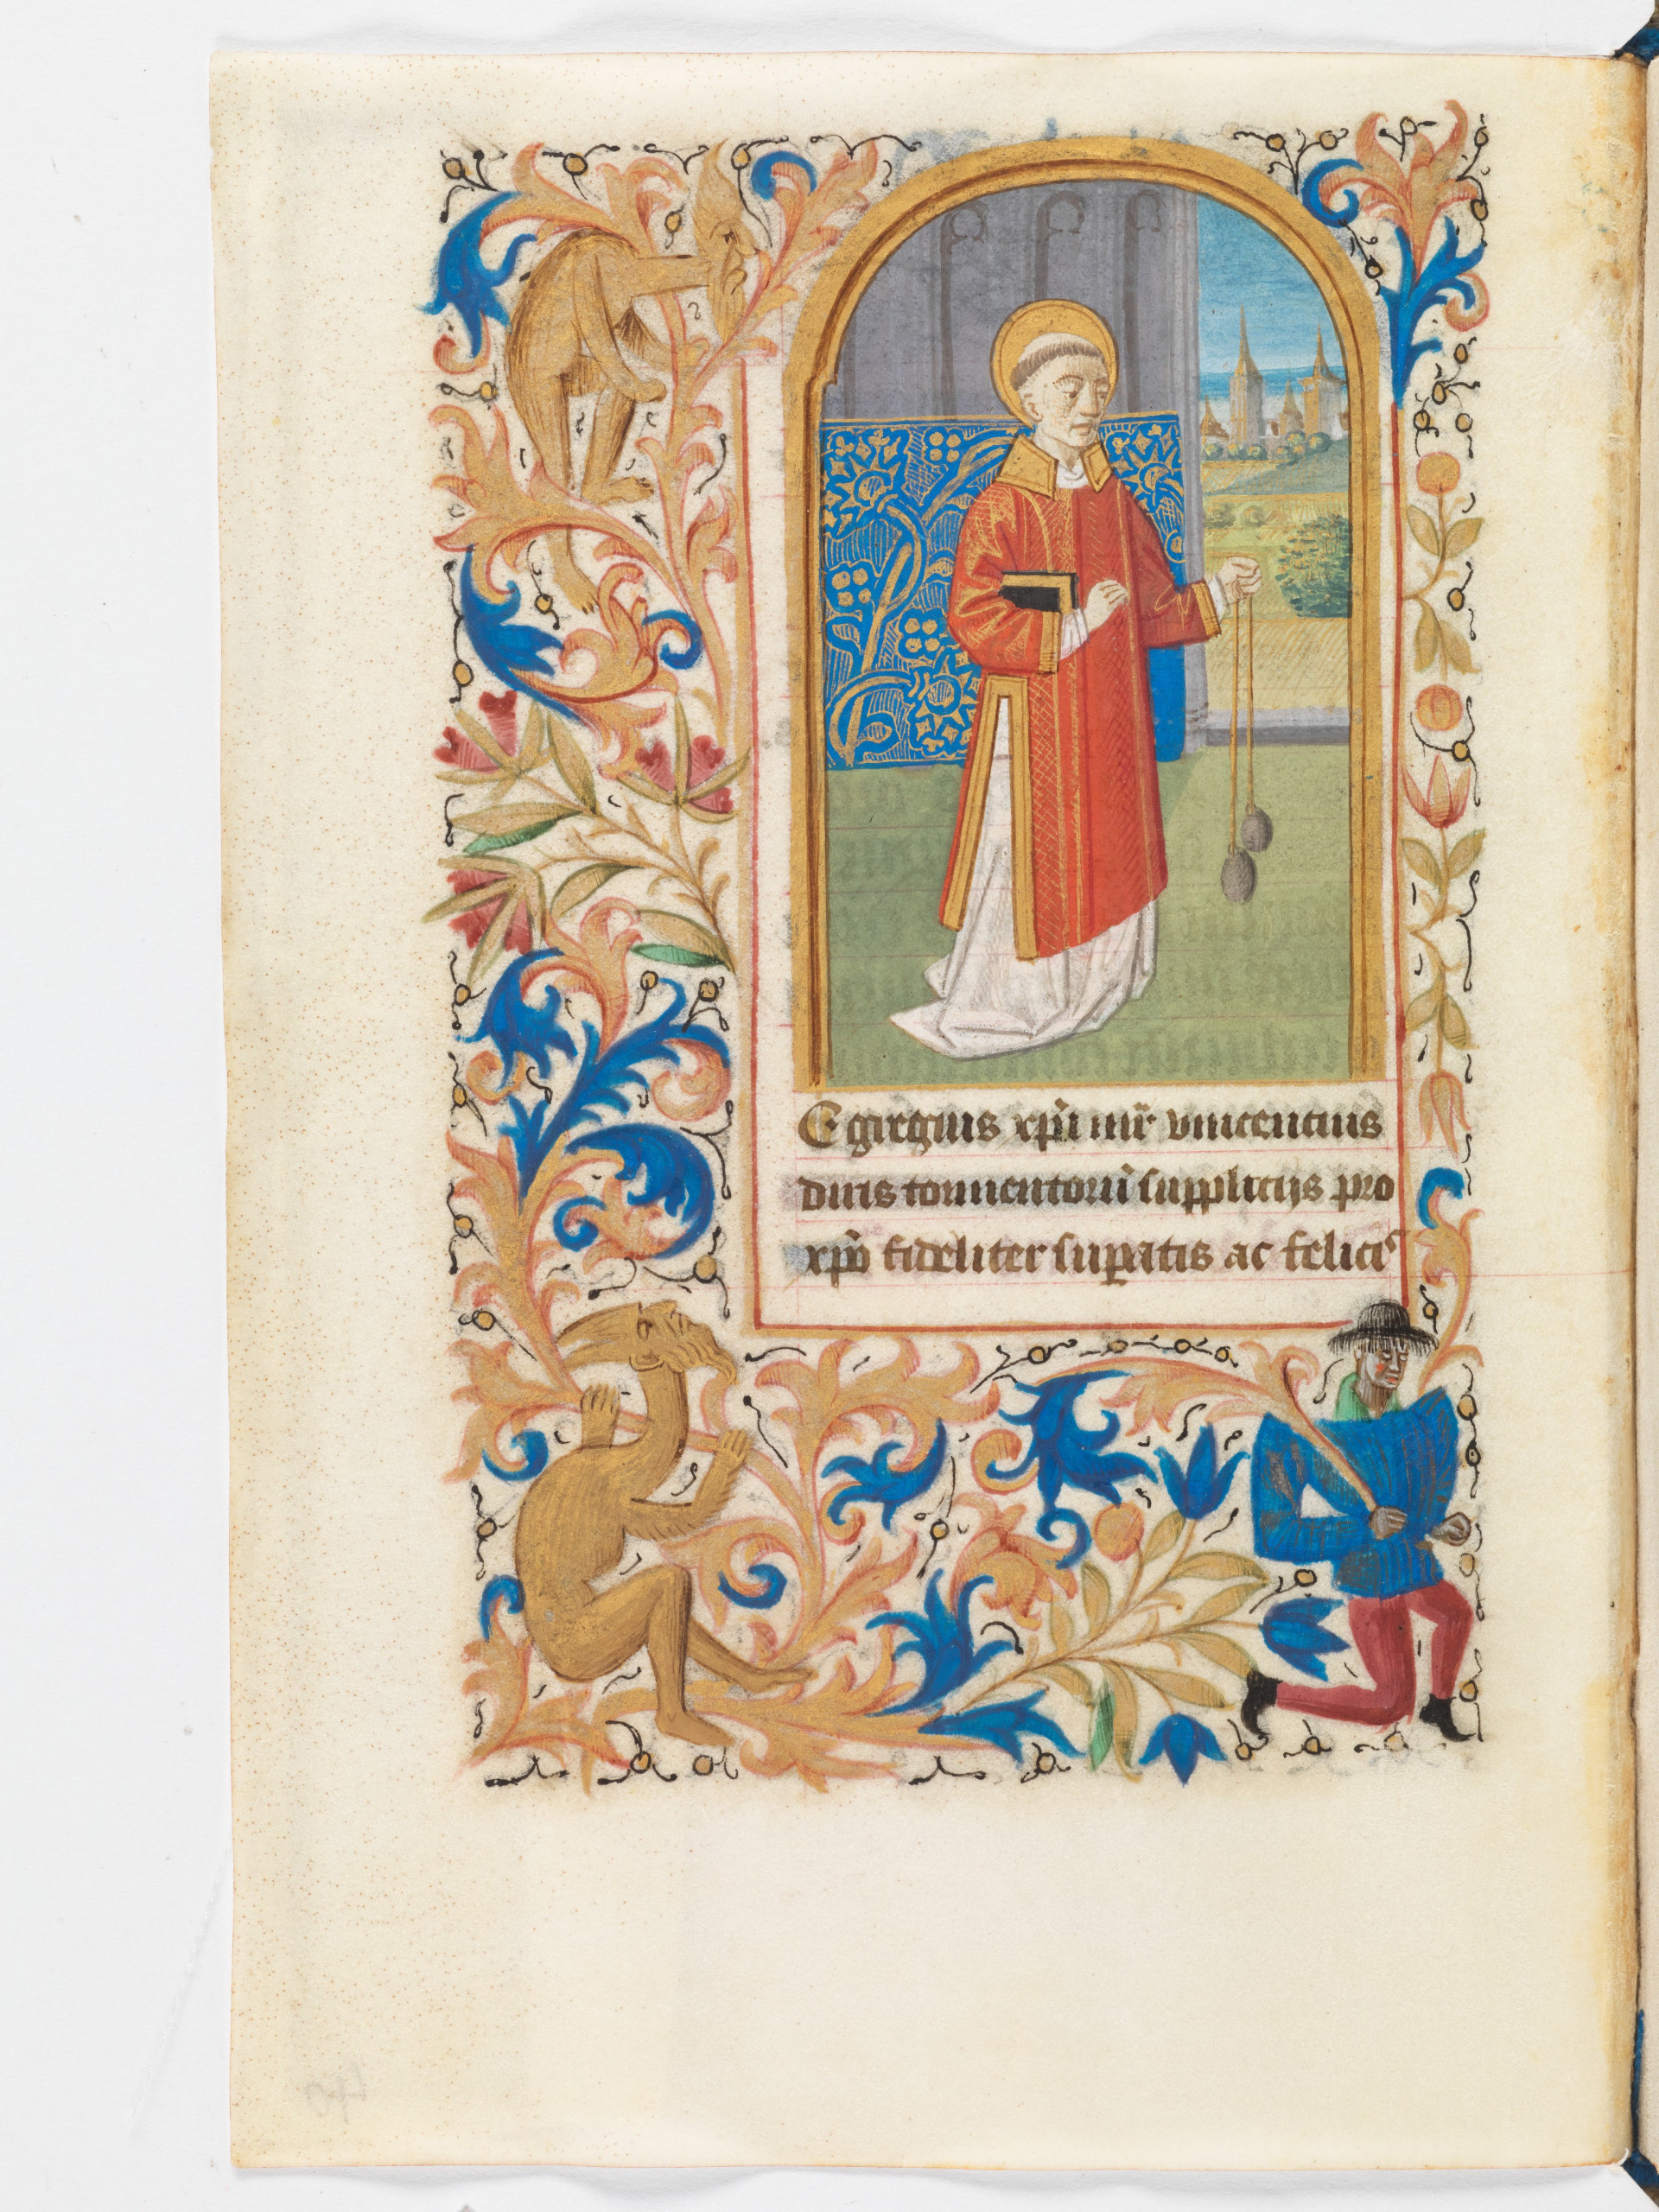 Egregius xp̃i mr̃ vincentius
diris tormentorũ supplicijs pro
xp̃o fideliter suꝑatis ac felicit̾